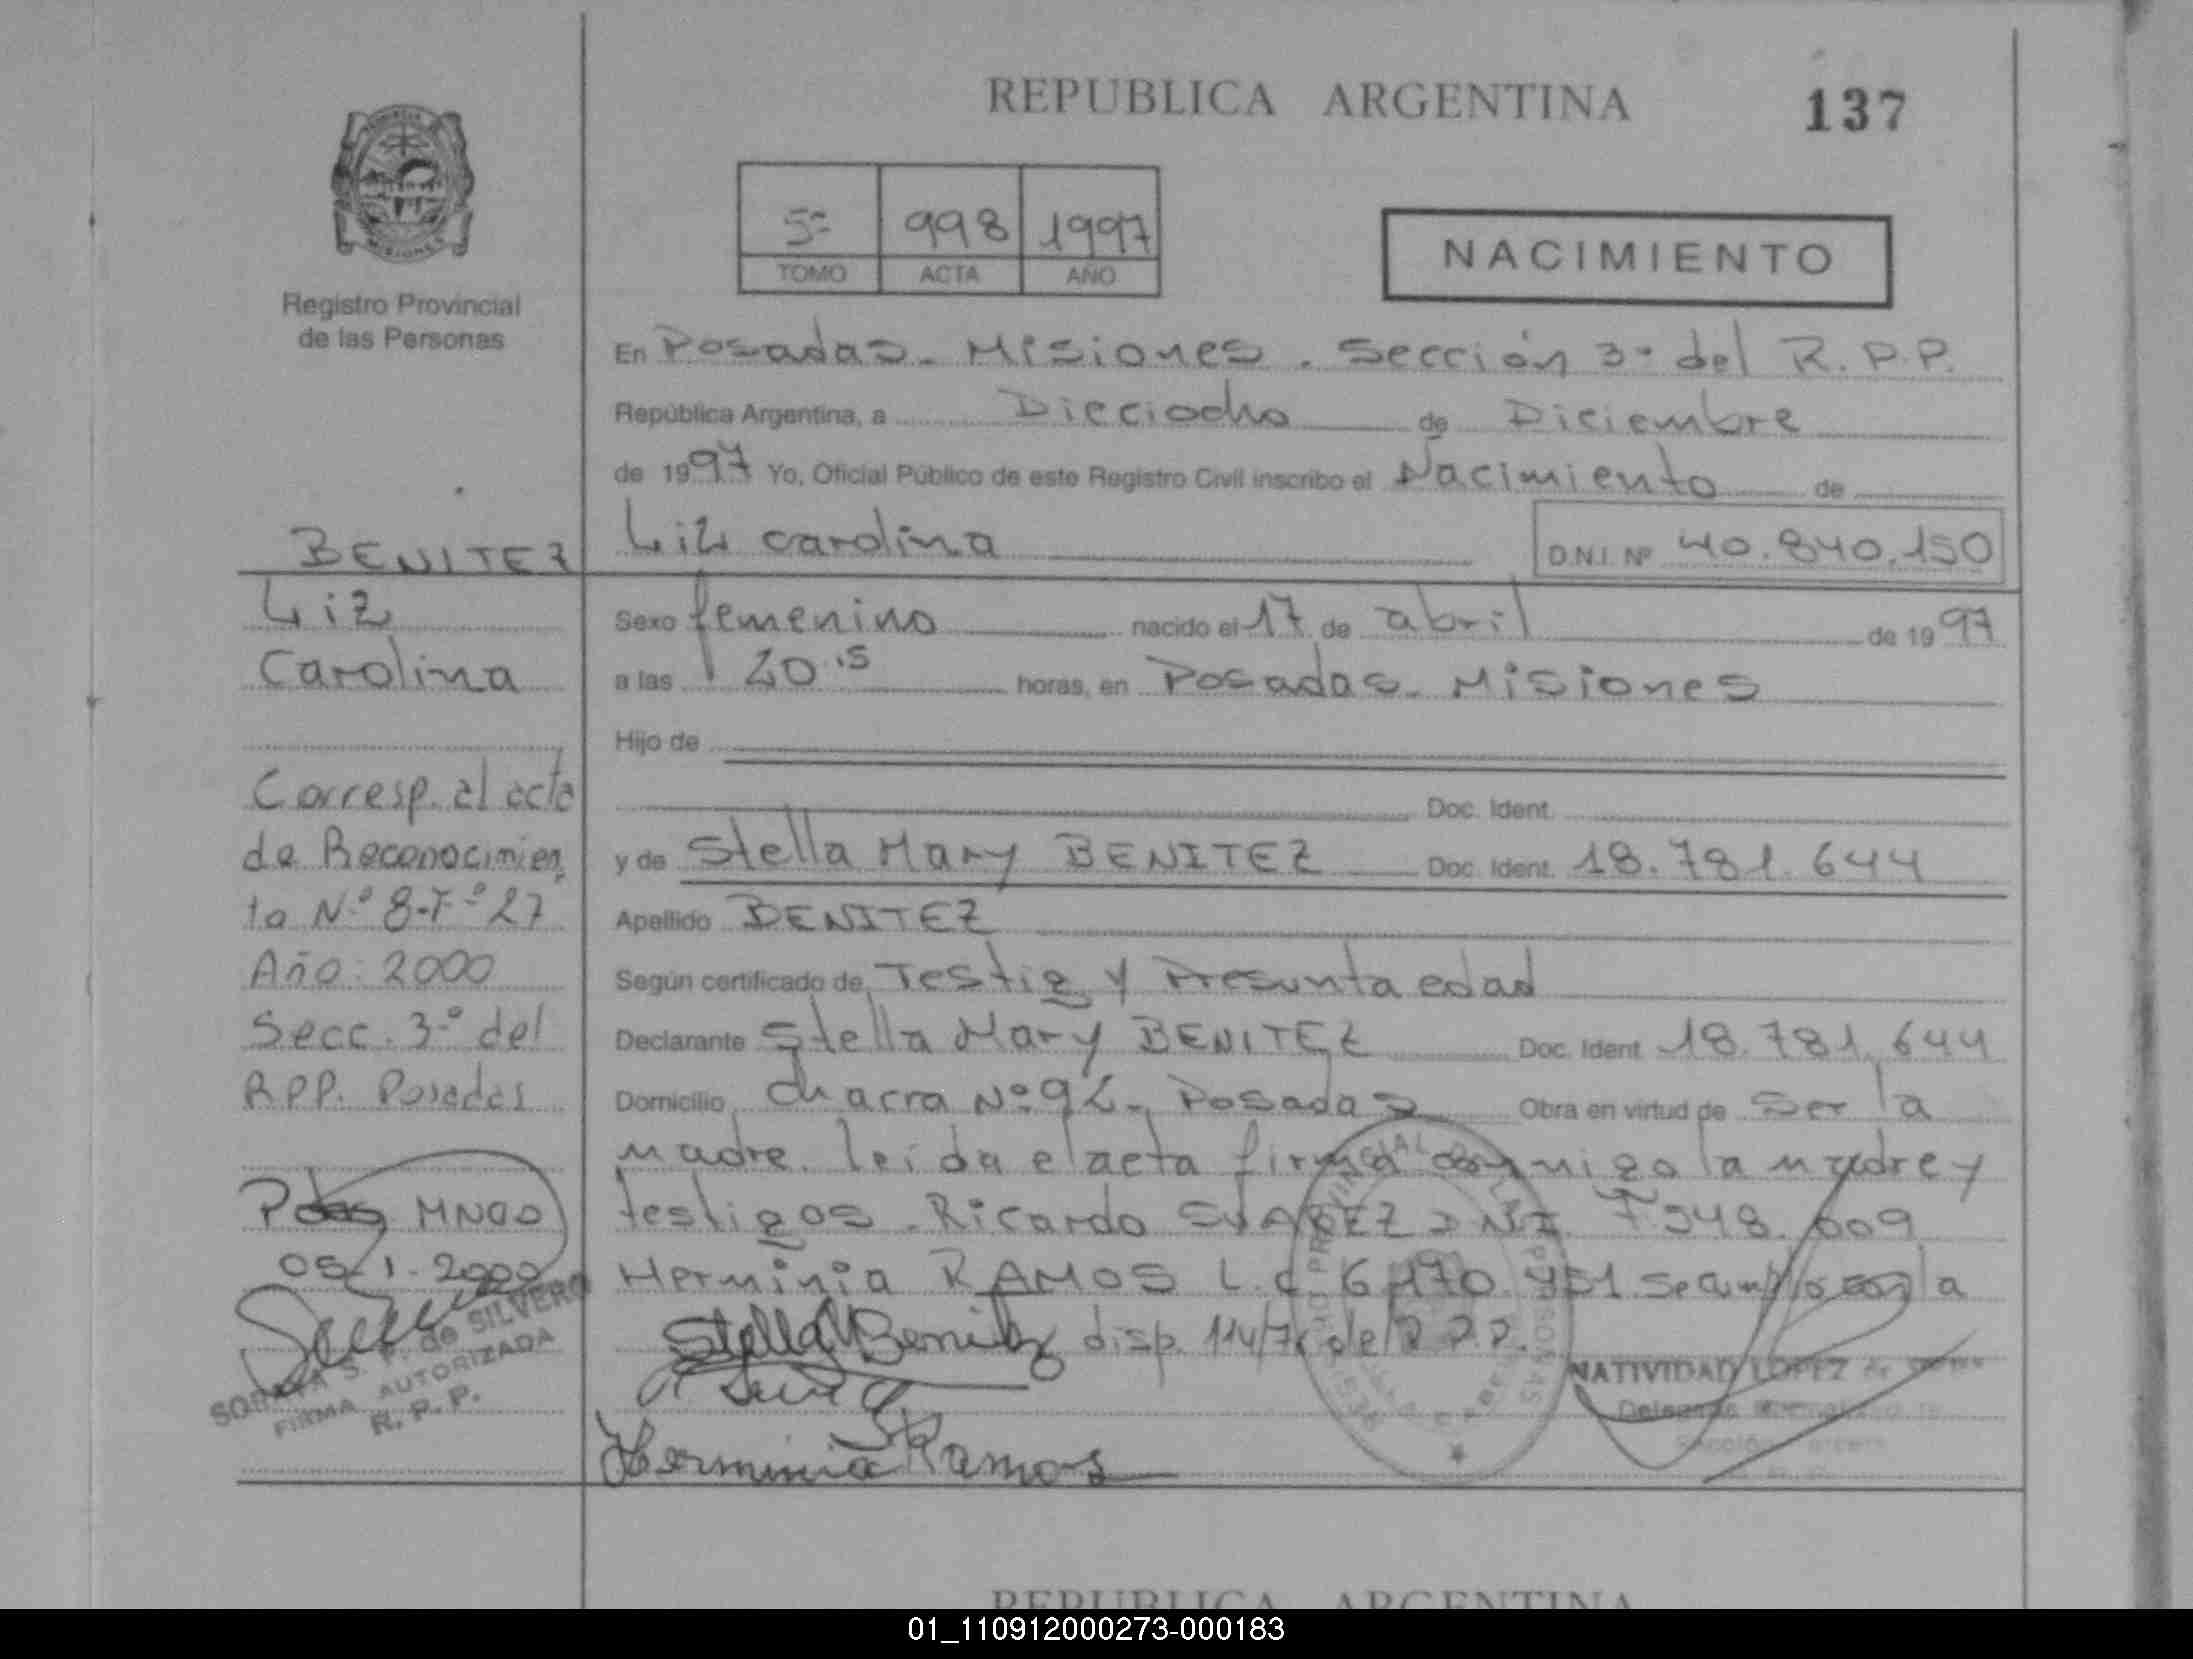 REPUBLICA ARGENTINA
137
5º 998 1997
TOMO ACTA AÑO
NACIMIENTO
Registro Provincial
de las Personas
En Posadas - Misiones . Sección 3º del R.P.P.
República Argentina, a Dieciocho de Diciembre
de 1997 Yo, Oficial Público de este Registro Civil inscribo el Nacimiento de
Liz Carolina D.N.I. Nº 40.840.150
Sexo femenino nacido el 17 de abril de 1997
a las 20.15 horas, en Posadas - Misiones
Hijo de
Doc. Ident.
y de Stella Mary BENITEZ Doc. Ident. 18.781.644
Apellido BENITEZ
Según certificado de Testig y Presunta edad
Declarante Stella Mary BENITEZ Doc. Ident 18.781.644
Domicilio Chacra Nº 92 - Posadas Obra en virtud de ser la
madre. leida el acta firma conmigo la madre y
testigos - Ricardo SUAREZ DNI. 7.548.009
Herminia RAMOS L.C. 6.170.951 se cumplio con la
Stella M Benitez disp. 114/7 del R.P.P.
Herminia Ramos
NATIVIDAD LOPEZ de
Sección Tercera
BENITEZ
Liz
Carolina
Corresp. al acta
de Reconocimien
to N.º 8-Fº 27
Año: 2000
Secc. 3º del
RPP. Posadas
Pdas MNOO
05.1.2000
SORAYA S. F. de SILVERO
FIRMA AUTORIZADA
R. P. P.
REPUBLICA ARGENTINA
01_110912000273-000183